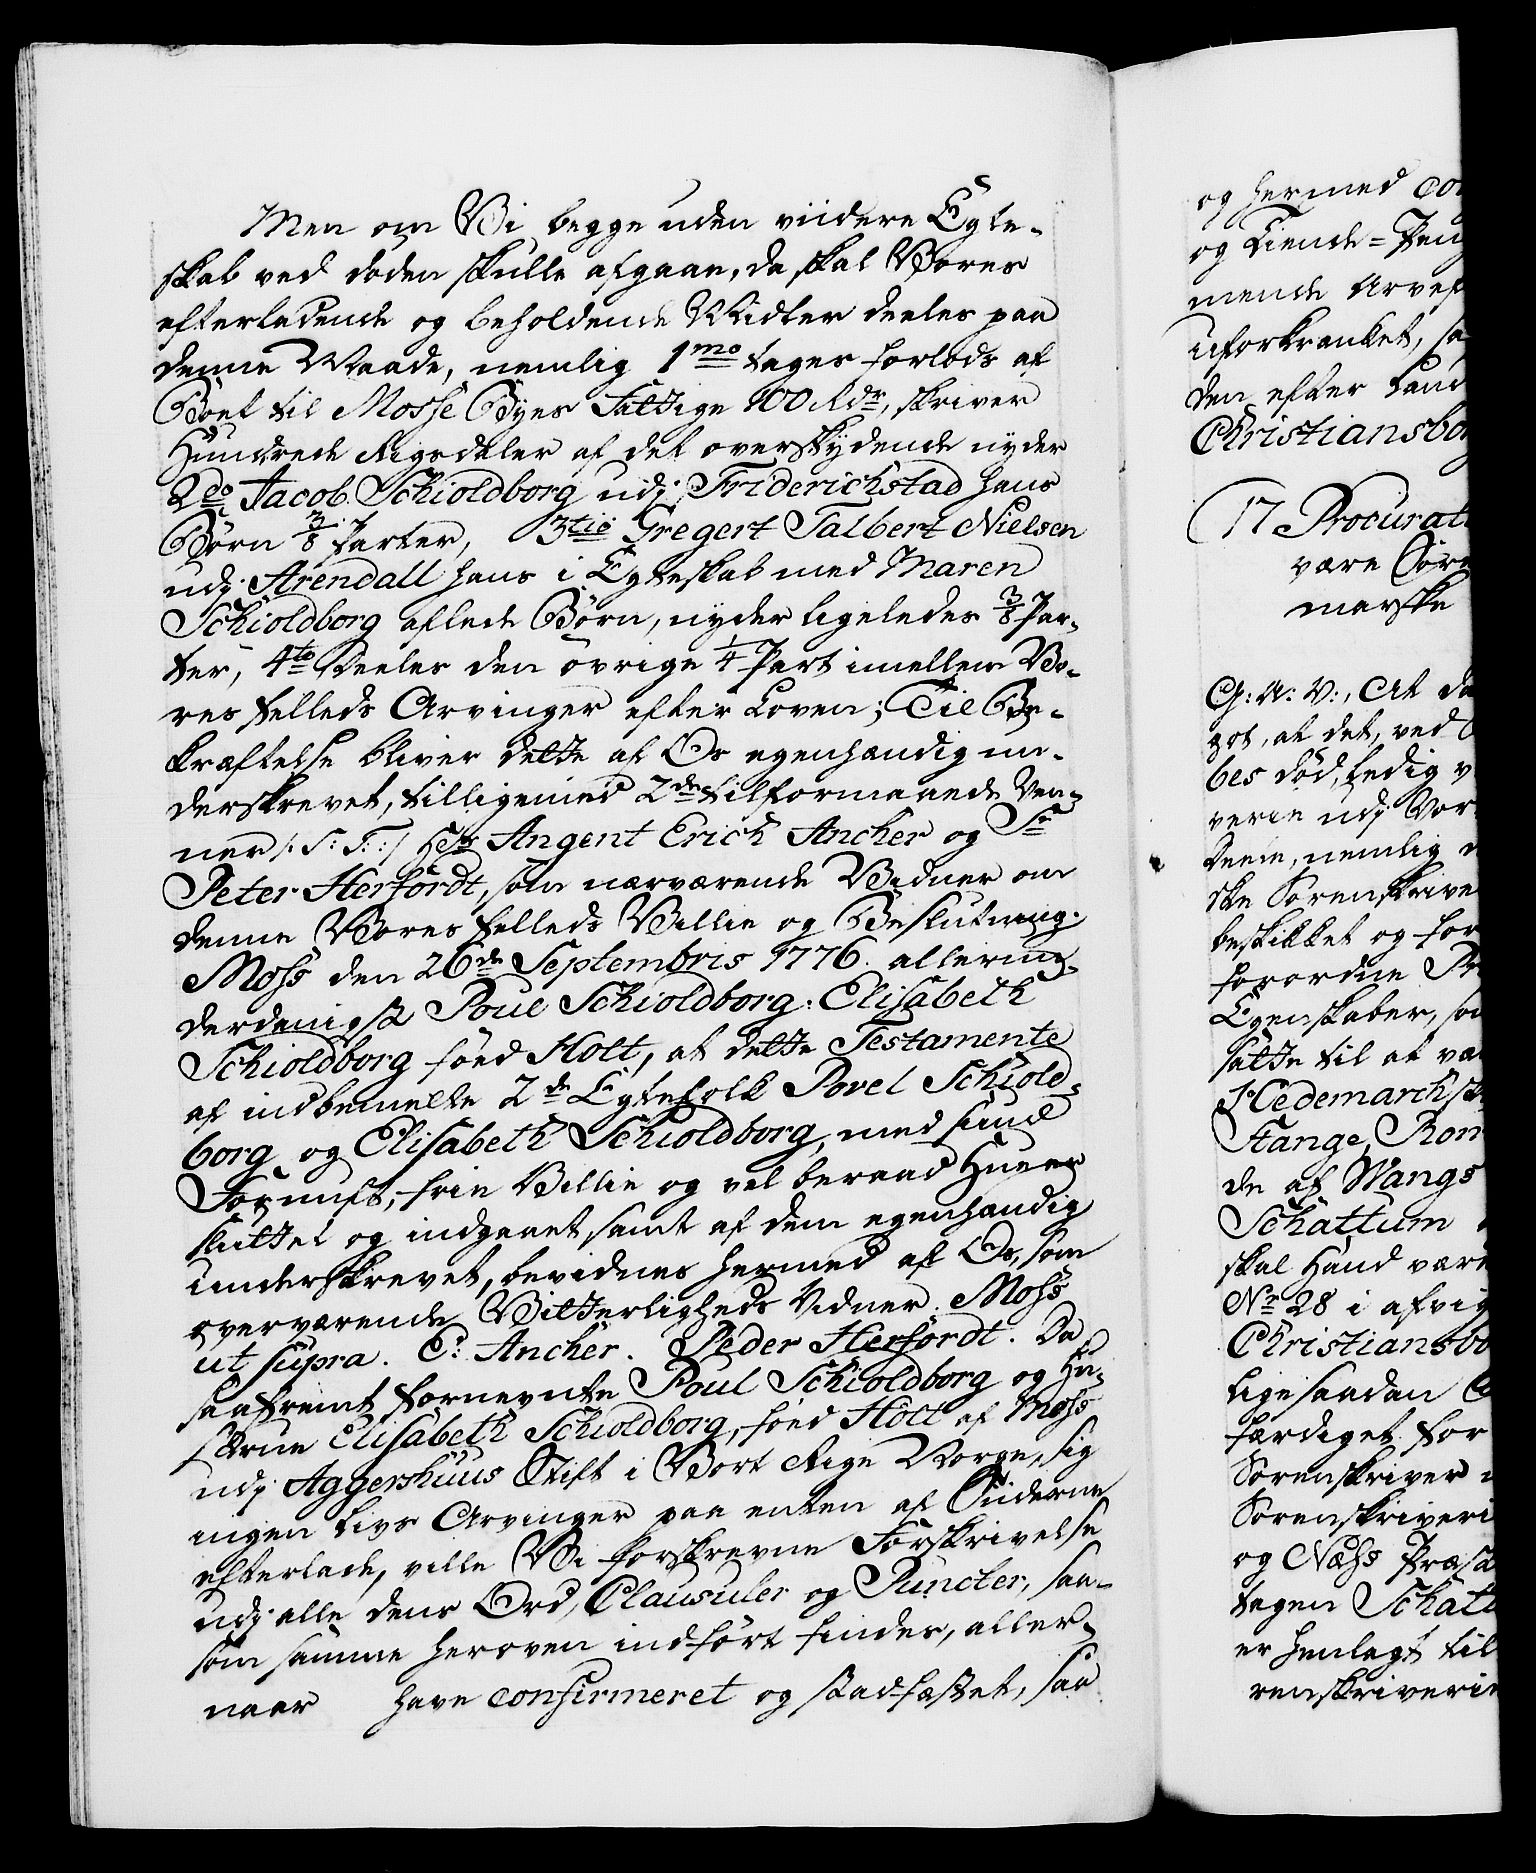 Men om Vi begge uden viidere Egte-
skab ved døden skulle afgaae, da skal Vores
efterladende og beholdende Midler deeles paa
denne Maade, nemlig 1mo tages forlods af
Boet til Mosse Byes Fattige 100 Rdr, skriver
Hundrede Rigsdaler af det overskydende nyder
2do Jacob Schioldborg udj Friderichstad hans
Børn 3/8 Parter, 3tio Gregert Talbert Nielsen
udj Arendall hans i Egteskab med Maren
Schioldborg aflede Børn, nyder ligeledes 3/8 Par-
ter, 4to Deeles den øvrige 1/4 Part imellem Vo-
res felleds Arvinger efter Loven; Til Be-
kræftelse bliver dette af Os egenhændig un-
derskrevet, tilligemed 2de tilformaaede Ven-
ner /: S: T: / Hr Angent Erich Ancher og Sr
Peter Herfordt, som nærværende Vidner om
denne Vores felleds Villie og Beslutning.
Moss den 26de Septembris 1776. allerun-
derdanigst Poul Schioldborg. Elisabeth
Schioldborg føed Holt, at dette Testamente
af indbemelte 2de Egtefolk Povel Schiold-
borg og Elisabeth Schioldborg, med sund
Fornuft, frie Villie og vel beraad Huue er
sluttet og indgaaet samt af dem egenhændig
underskrevet, bevidnes hermed af Os, som
overværende Vitterligheds Vidner. Moss
ut supra. E: Ancher. Peder Herfordt. Da
saafremt fornevnte Poul Schioldborg og Hu-
strue Elisabeth Schioldborg, føed Holt af Moss
udj Aggershuus Stift i Vort Rige Norge, sig
ingen Livs Arvinger paa enten af Siiderne
efterlade, ville Vi forskrevne Forskrivelse
udj alle dens Ord, Clausuler og Puncter, saa-
som samme heroven indført findes, aller-
naad have confirmeret og stadfæstet, saa
og hermed con
og Tiende-Pen
mende Arvef
uforkrænket, sa
den efter
Christiansbor
17 Procurat
være
marske
G: A: V:, At
got, at det, ved
bes død, ledig v
verie udj Vor
Deele, nemlig
ske Sorenskrive
beskikket og for
forordne Pr
Egenskaber, som
sætte til at væ
Hedemarchsk
Stange, Rom
de af Wangs
Schattum
skal Hand være
No 28 i afvig
Christiansbo
ligesaadan
færdiget for
Sorenskriver
Sorenskriveri
og Næss Præst
tagen Schatt
er henlagt til
renskriverie